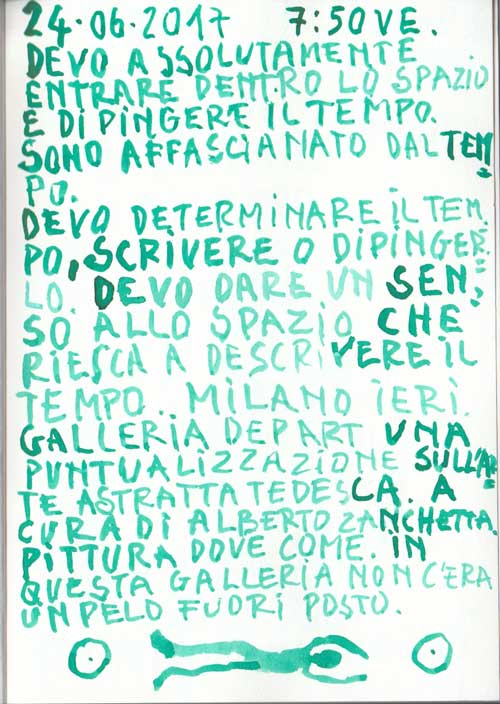 24.06.2017 7:50VE.
DEVO ASSOLUTAMENTE
ENTRARE DENTRO LO SPAZIO
E DIPINGERE IL TEMPO.
SONO AFFASCIANATO DAL TEM=
PO.
DEVO DETERMINARE IL TEM.
PO, SCRIVERE O DIPINGER=
LO. DEVO DARE UN SEN=
SO ALLO SPAZIO CHE
RIESCA A DESCRIVERE IL
TEMPO.. MILANO IERI.
GALLERIA DEPART UNA
PUNTUALIZZAZIONE SULL'AR=
TE ASTRATTA TEDESCA. A
CURA DI ALBERTO ZANCHETTA.
PITTURA DOVE COME. IN
QUESTA GALLERIA NON C'ERA
UN PELO FUORI POSTO.